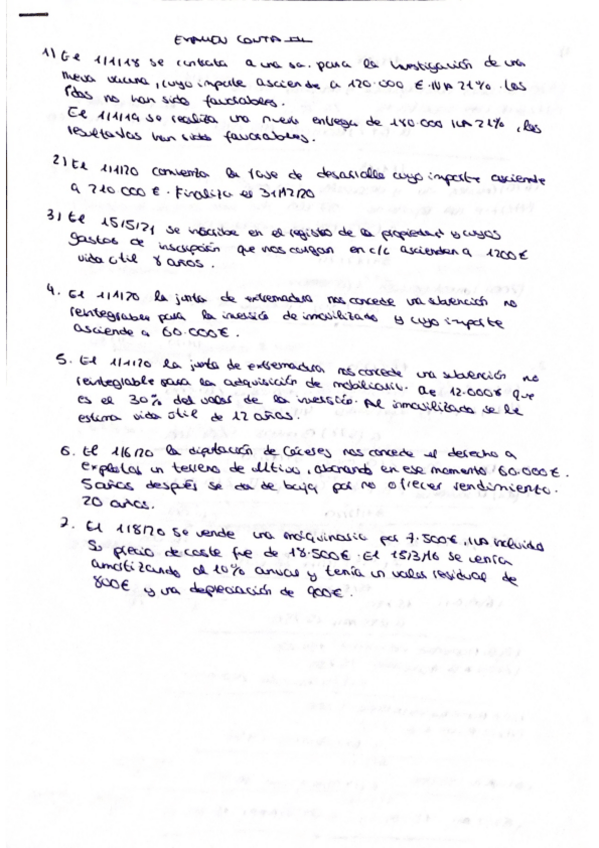 EXAMEN CONTA III
1) El 1/1/18 se contrata a una sa. para la investigación de una
nueva vacuna, cuyo importe asciende a 120.000 € IVA 21%. Los
rdos no han sido favorables.
El 1/1/19 se realiza una nueva entrega de 180.000 IVA 21%, los
resultados han sido favorables.
2) El 1/1/20 comienza la fase de desarrollo cuyo importe asciende
a 210 000 €. Finaliza el 31/12/20
3) El 15/5/21 se inscribe en el registro de la propiedad y cuyos
gastos de inscripción que nos cargan en c/c ascienden a 1200€
vida útil 8 años.
4. El 1/1/20 la junta de extremadura nos concede una subvención no
reintegrable para la inversión de inmovilizado y cuyo importe
asciende a 60.000€.
5. El 1/1/20 la junta de extremadura nos concede una subvención no
reintegrable para la adquisición de mobiliario. de 12.000€ que
es el 30% del valor de la inversión. Al inmovilizado se le
estima vida útil de 12 años.
6. El 1/6/20 la diputación de Cáceres nos concede el derecho a
explotar un terreno de cultivo, abonando en ese momento 60.000€.
5 años después se da de baja por no ofrecer rendimiento.
20 años.
7. El 1/8/20 se vende una maquinaria por 7.500€, IVA incluido
Su precio de coste fue de 18.500€. El 15/3/16 se venía
amortizando al 10% anual y tenía un valor residual de
800€ y una depreciación de 900€.